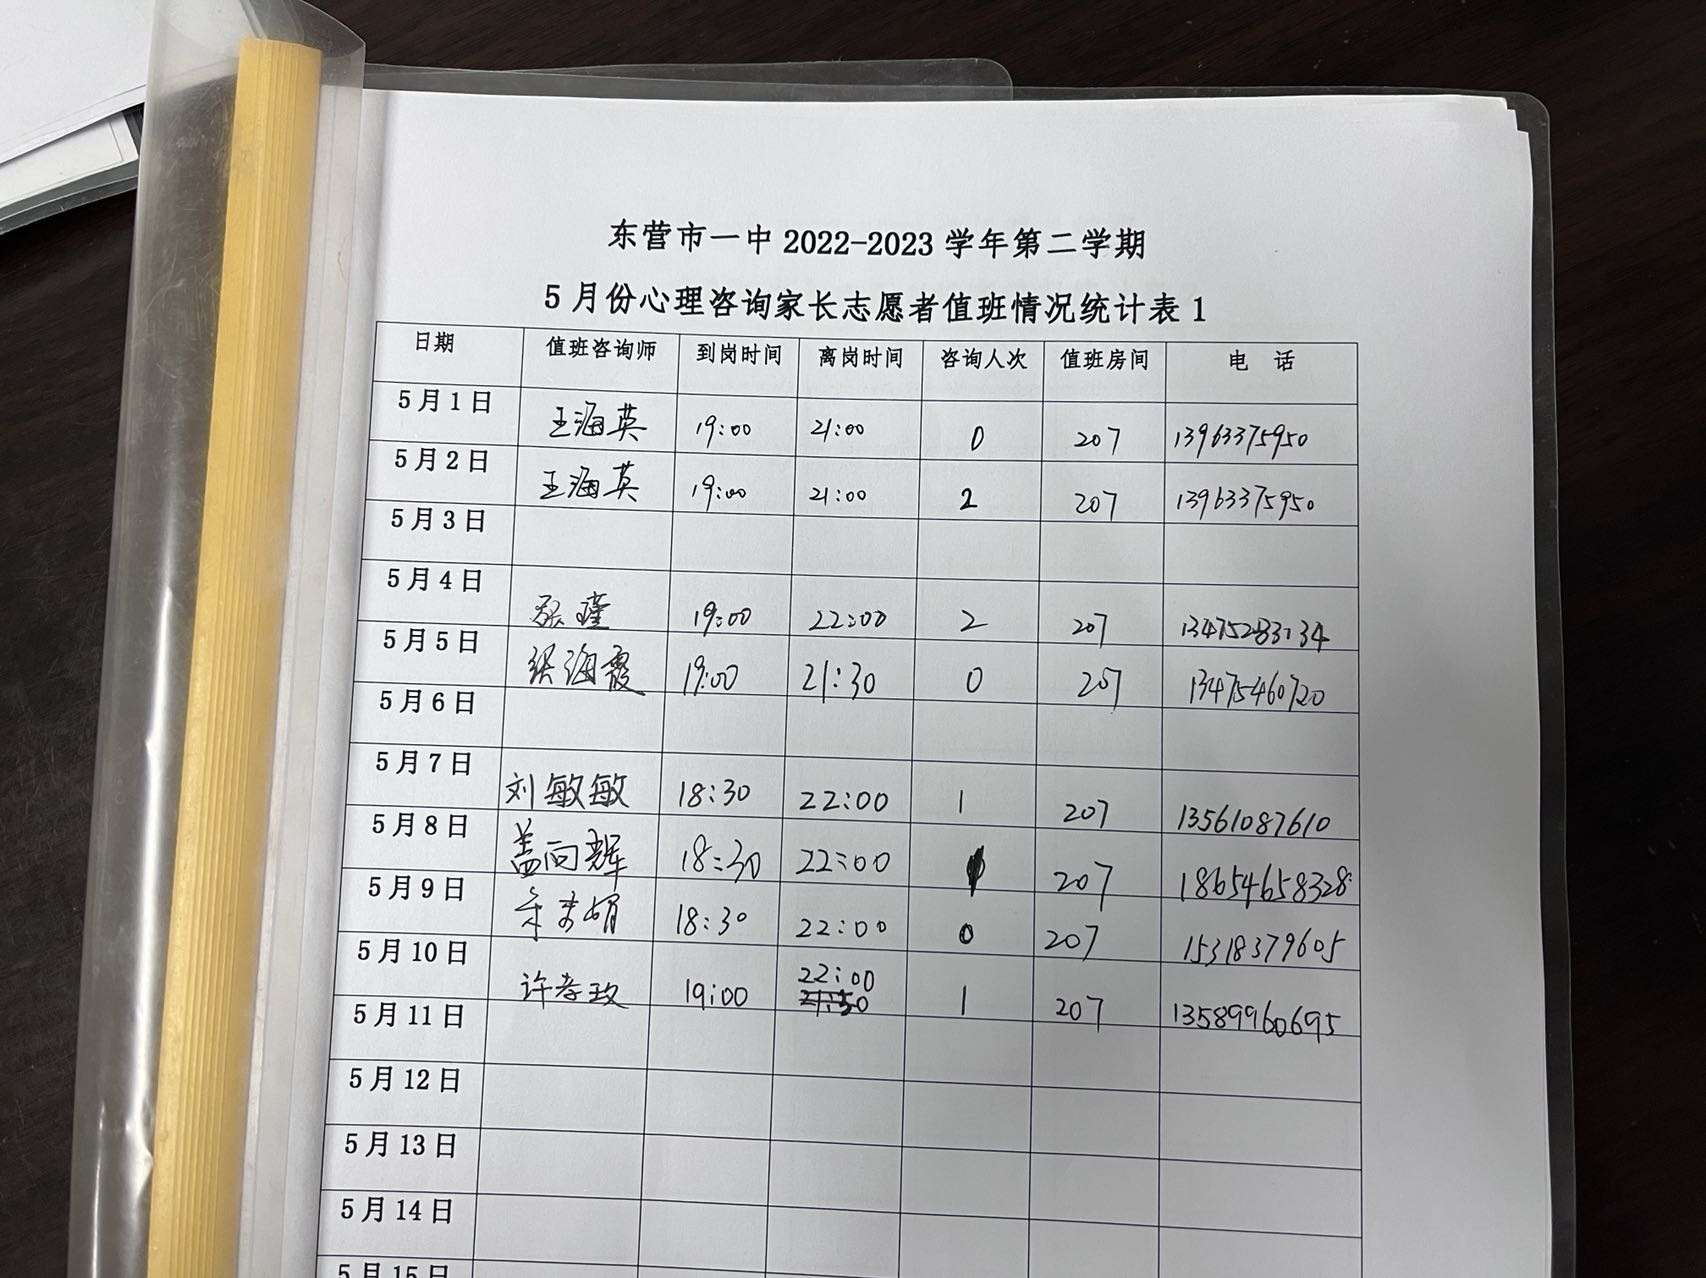 东营市一中 2022-2023 学年第二学期
5 月份心理咨询家长志愿者值班情况统计表 1
日期 值班咨询师 到岗时间 离岗时间 咨询人次 值班房间 电 话
5 月 1 日 王海英 19:00 21:00 0 207 13963375950
5 月 2 日 王海英 19:00 21:00 2 207 13963375950
5 月 3 日
5 月 4 日 张瑾 19:00 22:00 2 207
5 月 5 日 张海霞 19:00 21:30 0 207 13475460720
5 月 6 日
5 月 7 日 刘敏敏 18:30 22:00 1 207 13561087610
5 月 8 日 盖向辉 18:30 22:00 207 18654658328
5 月 9 日 18:30 22:00 0 207 15318379605
5 月 10 日 许孝玫 19:00 22:00 1 207 13589960695
5 月 11 日
5 月 12 日
5 月 13 日
5 月 14 日
5 月 15 日